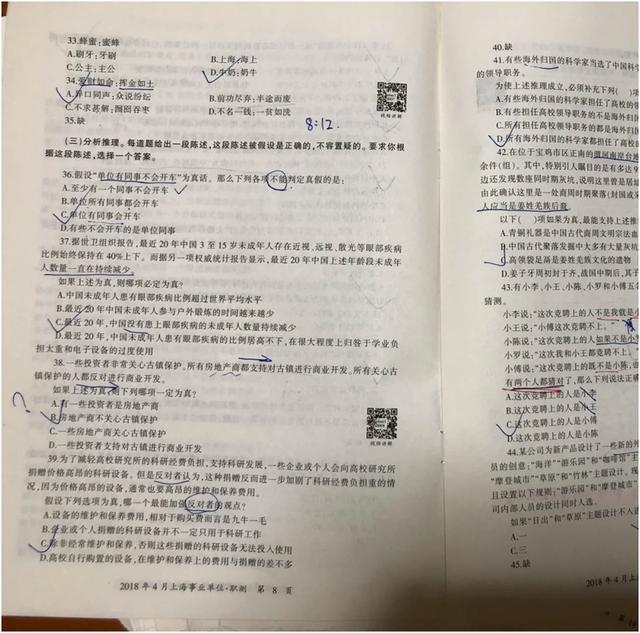 33.蜂蜜:蜜蜂
A.刷牙:牙刷
B.上海:海上
C.公主:主公
D.牛奶:奶牛
34.爱财如命:挥金如土
A.异口同声:众说纷纭
B.前功尽弃:半途而废
C.不求甚解:囫囵吞枣
D.不名一钱:一贫如洗
35.缺
视频讲解
8:12.
(三)分析推理。每道题给出一段陈述,这段陈述被假设是正确的,不容置疑的。要求你根
据这段陈述,选择一个答案。
36.假设“单位有同事不会开车”为真话。那么下列各项不能判定真假的是:
A.至少有一个同事不会开车
B.单位所有同事都会开车
C.单位有同事会开车
D.有些不会开车的是单位同事
37.据世卫组织报告,最近20年中国3至15岁未成年人存在近视、远视、散光等眼部疾病
比例始终保持在40%上下。而据另一项权威统计报告显示,最近20年中国上述年龄段未成年
人数量一直在持续减少。
如果上述为真,则哪项必定为真?
A.中国未成年人患有眼部疾病比例超过世界平均水平
B.最近20年中国未成年人参与户外锻炼的时间越来越少
C.最近20年,中国没有患上眼部疾病的未成年人数量持续减少
D.最近20年,中国未成年人患有眼部疾病的比例居高不下,在很大程度上归咎于学业负
担太重和电子设备的过度使用
38.一些投资者非常关心古镇保护,所有房地产商都支持对古镇进行商业开发。所有关心古
镇保护的人都反对进行商业开发。
如果上述为真,则下列哪项一定为真?
?
A.有一些投资者是房地产商
B.房地产商不关心古镇保护
C.一些房地产商关心古镇保护
D.一些投资者支持对古镇进行商业开发
视频讲解
39.为了减轻高校研究所的科研经费负担,支持科研发展,一些企业或个人会向高校研究所
捐赠价格高昂的科研设备。但是反对者认为,这种捐赠反而进一步加剧了科研经费负担重的情
况,因为价格高昂的设备,通常也要高昂的维护和保养费用。
假设下列选项为真,哪一个最能加强反对者的观点?
A.设备的维护和保养费用,相对于购买费而言是九牛一毛
B.企业或个人捐赠的科研设备并不一定只用于科研工作
C.除非经常维护和保养,否则这些捐赠的科研设备无法投入使用
D.高校自行购置的设备,在维护和保养上的费用与捐赠的差不多
2018年4月上海事业单位·职测 第8页
40.缺
41.有些海外归国的科学家当选了中国科学
的领导职务。
为使上述推理成立,必须补充下列( )项
A.有些海外归国的科学家担任了高校的
B.有些担任高校领导职务的不是海外归
C.所有担任高校领导职务的都是海外归
D.所有海外归国的科学家都担任了高校
42.在位于宝鸡市区正南的渭河南岸台地
余件(组)。其中,特别引人瞩目的是有多达
边还发现数座同时期灰坑,说明这曾是居址
由此确认这里是一处商周时期聚落(封国或
人应当是姜姓羌族后裔。
以下( )项如果为真,最能支持上述推
A.青铜礼器是中国古代商周文明宗法
B.中国古代聚落发掘中大多有大量灰坑
C.高领袋足鬲是姜姓羌族文化的遗物
D.姜子牙周初封于齐,战国中期后,其子
43.有小李、小王、小陈、小罗和小傅五名
猜测。
小李说:“这次竞聘上的人不是我就是小
小王说:“小傅这次竞聘不上。”
小陈说:“这次竞聘上的人如果不是小罗
小罗说:“这次我和小王都竞聘不上。”
小傅说:“这次竞聘上的既不是小陈,也
有两个人都猜对了,那么下列说法正
A.这次竞聘上的人是小李
B.这次竞聘上的人是小王
C.这次竞聘上的人是小傅
D.这次竞聘上的人是小陈
44.某公司为新产品设计了一些新的外
员的创意:“海洋”“游乐园”和“咖啡馆”主
“摩登城市”“草原”和“竹林”主题设计。现
且设置以下规则:“游乐园”和“摩登城市”
司内部人员的设计同时入选。
如果“日出”和“草原”主题设计不入选
A.一
C.三
45.缺